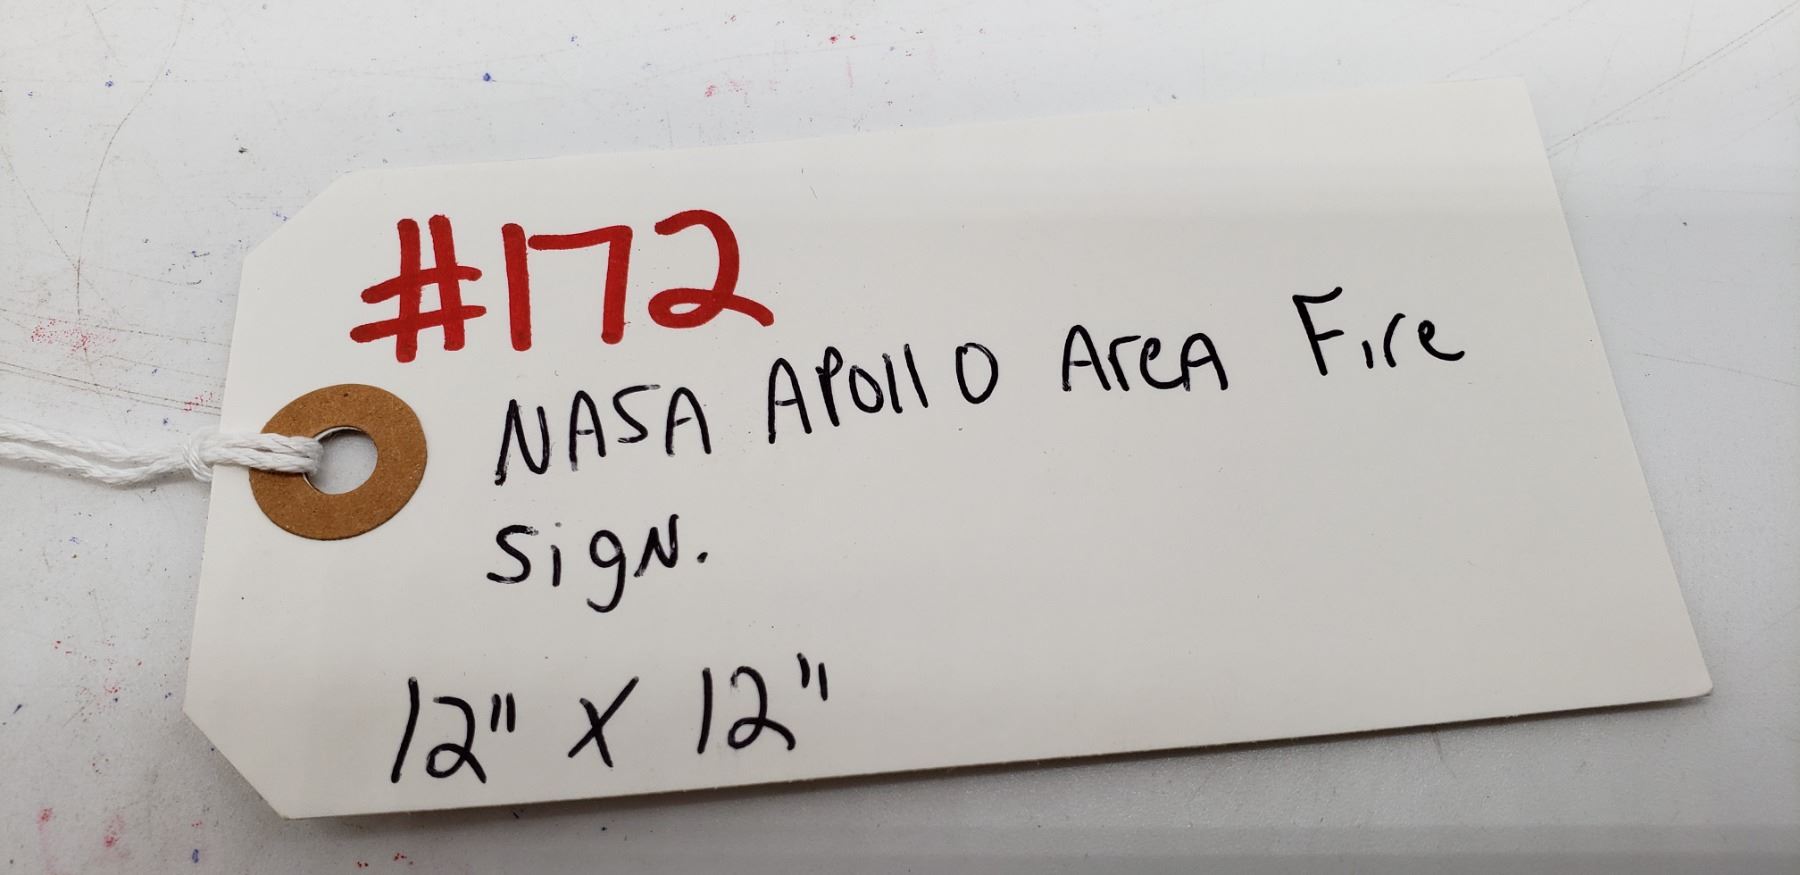 #172
NASA Apollo Area Fire
Sign.
12" X 12"